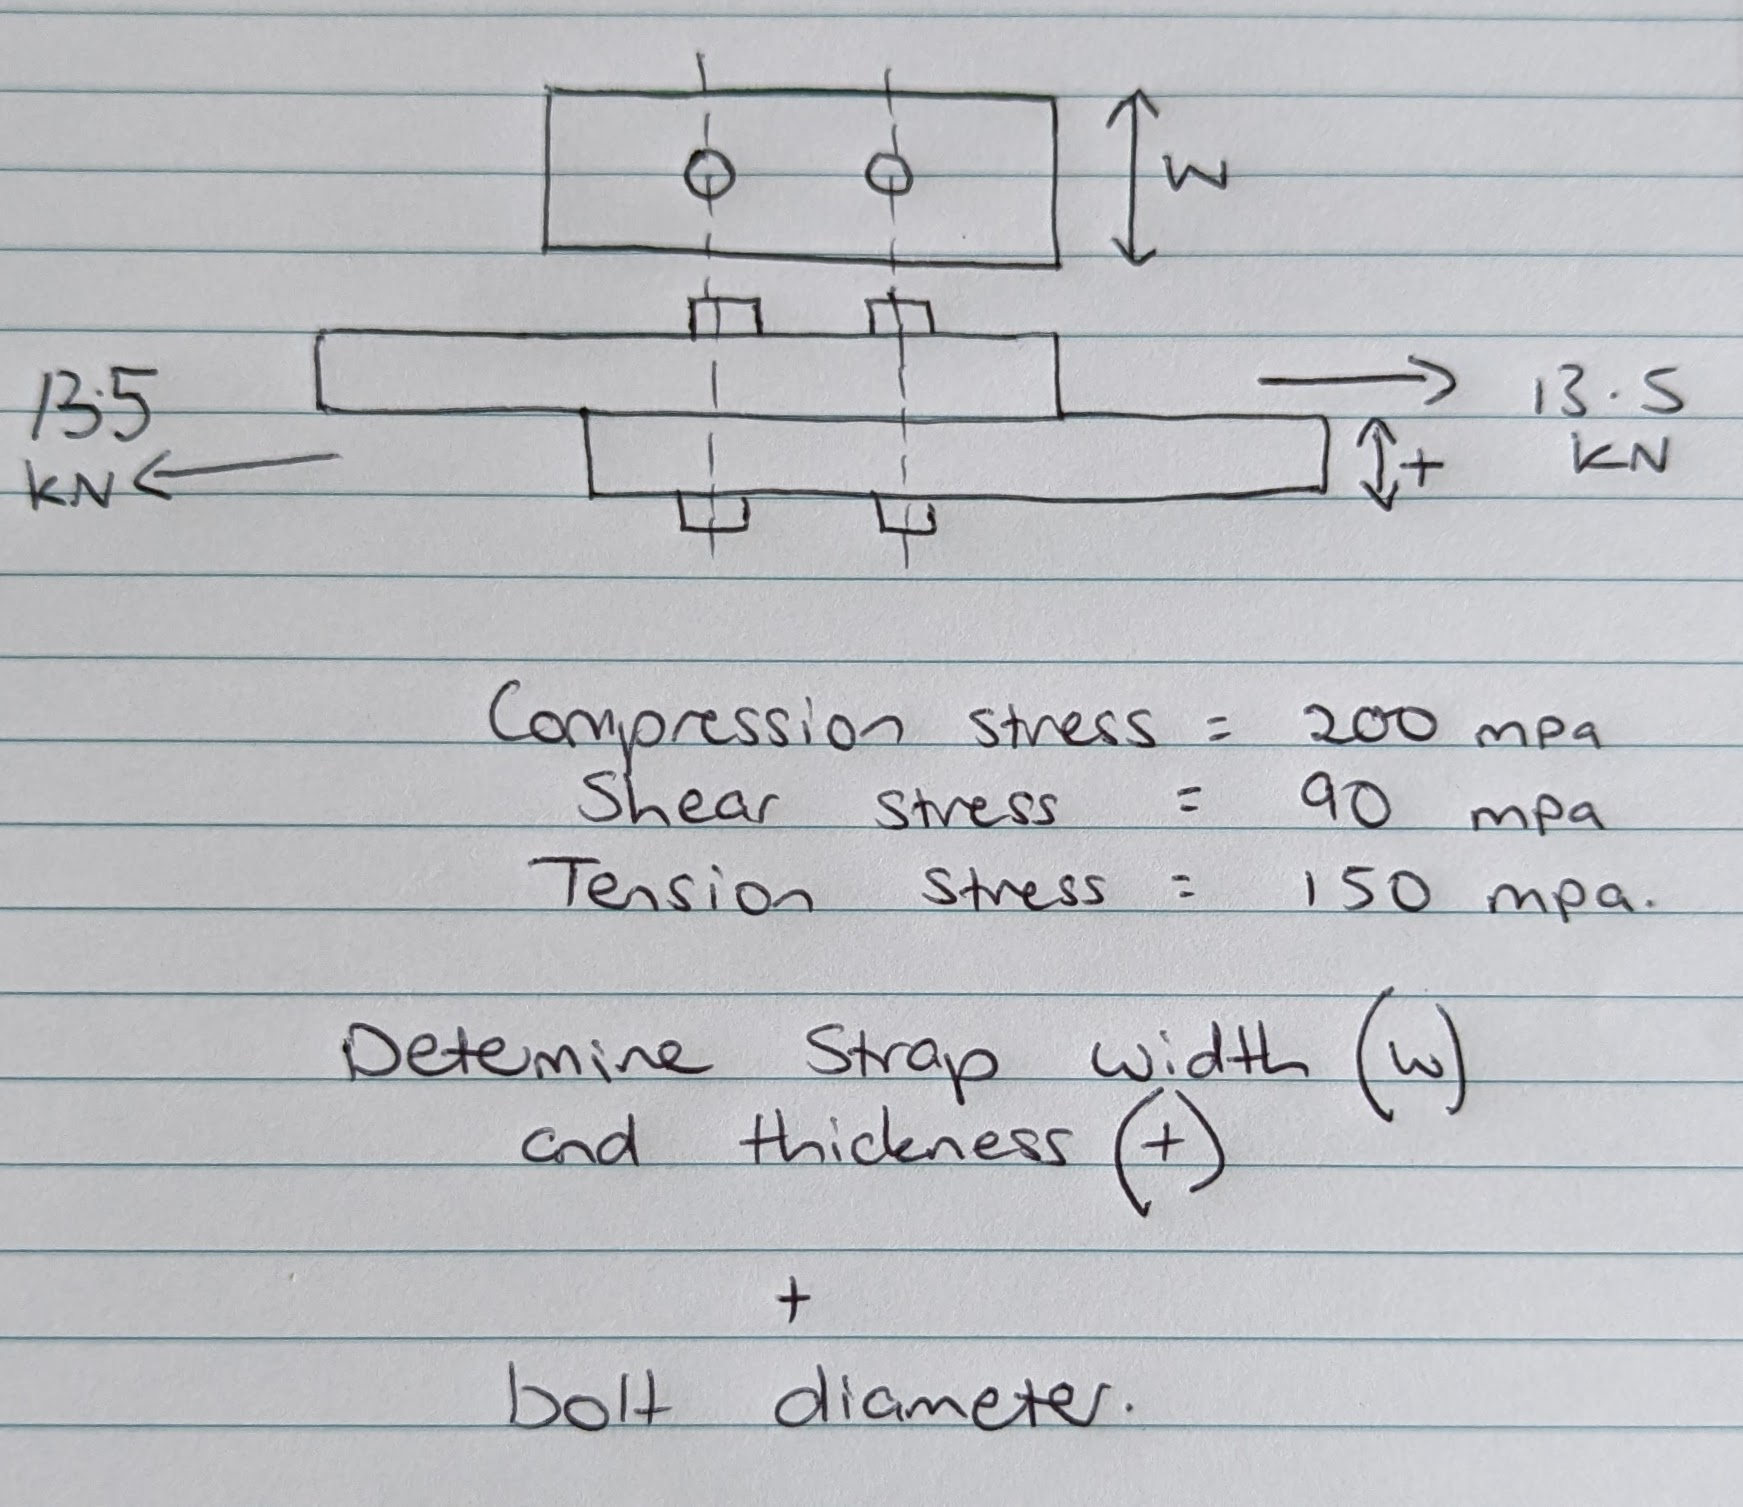 W
13.5
KN
13.5
KN
t
Compression stress = 200 mpa
Shear stress = 90 mpa
Tension stress = 150 mpa.
Detemine Strap width (w)
and thickness (t)
+
bolt diameter.